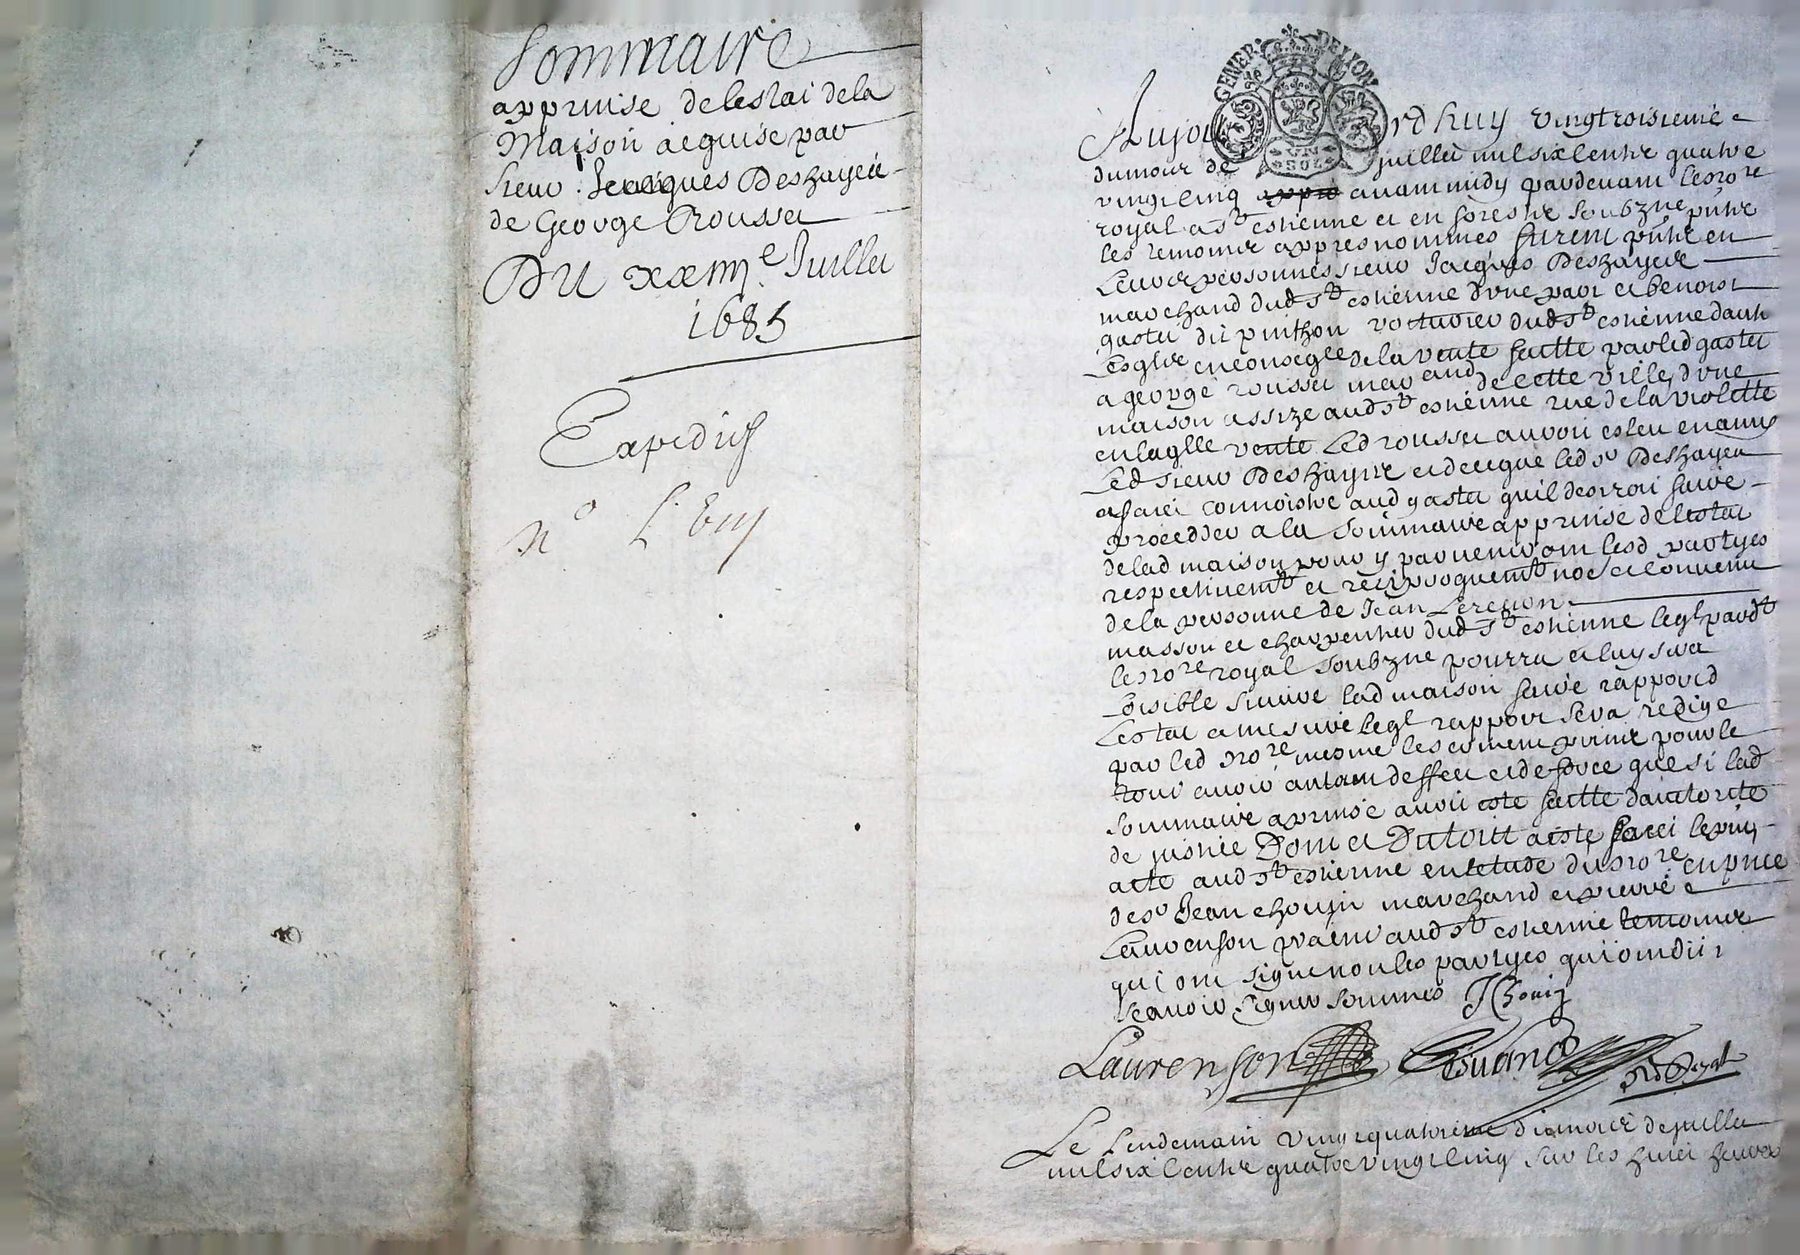 Sommaire
apprinse de lestat de la
Maison acquise par
sieur Jacques Deshayes
de George Rousset
Du xxiii.e Juillet
1685
Expedié
n°
GENER. DE LYON
VN
SOL
Aujourdhuy vingtroisieme
du mois de juillet mil six centz quatre
vingt cinq avant midy pardevant le no.re
royal a S.t estienne et en forestz soubzne
les temoins appres nommes furent en
leurs personnes sieur Jacques Deshayes
marchand dud S.t estienne dune part et benoist
gastet dit pinthon voiturier dud S.t estienne dautre
en conseq.ce de la vente faitte par led gastet
a george rousset march.and de cette ville dune
maison assize aud S.t estienne rue de la violette
en laq.lle vente led rousset auroit esleu en amy
led sieur Deshayes et de ce que led s.r Deshayes
a faict connoistre aud gastet quil desiroit faire
proceder a la sommaire apprinse de lestat
de lad maison pour y parvenir ont lesd partyes
respectivem.t et reciproquem.t et convenu
de la personne de Jean
masson et charpentier dud S.t estienne leq.l pard.t
le no.re royal soubzne pourra et luy sera
loisible suivre lad maison faire rapport d
lestat a mesure leq.l rapport sera redige
par led no.re pour le
tout avoir autant deffect et de force que si lad
sommaire aprinse avoit esté faitte dautorité
de justice Dont et Du tout a esté faict le pnt
acte aud S.t estienne en letude du no.re en pnce
de s.r Jean chouin marchand et pierre
Laurenson aud S.t estienne temoins
qui ont signe non les partyes qui ont dit
scavoir signer sommes JChouin
Laurenson
Le Lendemain vingt quatorieme du mois de juillet
mil six centz quatre vingt cinq sur les huict heures